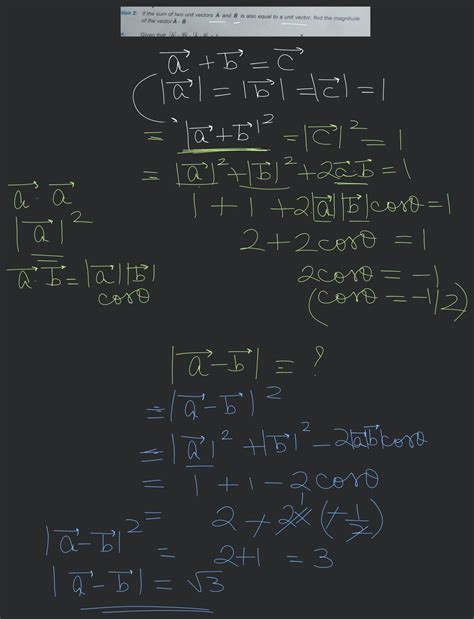 If the sum of two unit vectors A and B is also equal to a unit vector, find the magnitude
of the vector A - B.
Given that
a⃗ + b⃗ = c⃗
|a⃗| = |b⃗| = |c⃗| = 1
= |a⃗+b⃗|² = |c⃗|² = 1
= |a⃗|² + |b⃗|² + 2a⃗.b⃗ = 1
1 + 1 + 2|a⃗||b⃗|cosθ = 1
2 + 2cosθ = 1
2cosθ = -1
(cosθ = -1/2)
a⃗ . a⃗
|a⃗|²
a⃗ . b⃗ = |a⃗||b⃗|
cosθ
|a⃗ - b⃗| = ?
= |a⃗ - b⃗|²
= |a⃗|² + |b⃗|² - 2|a⃗b⃗|cosθ
= 1 + 1 - 2cosθ
= 2 + 2 (+1/2)
|a⃗-b⃗|² = 2+1 = 3
|a⃗-b⃗| = √3